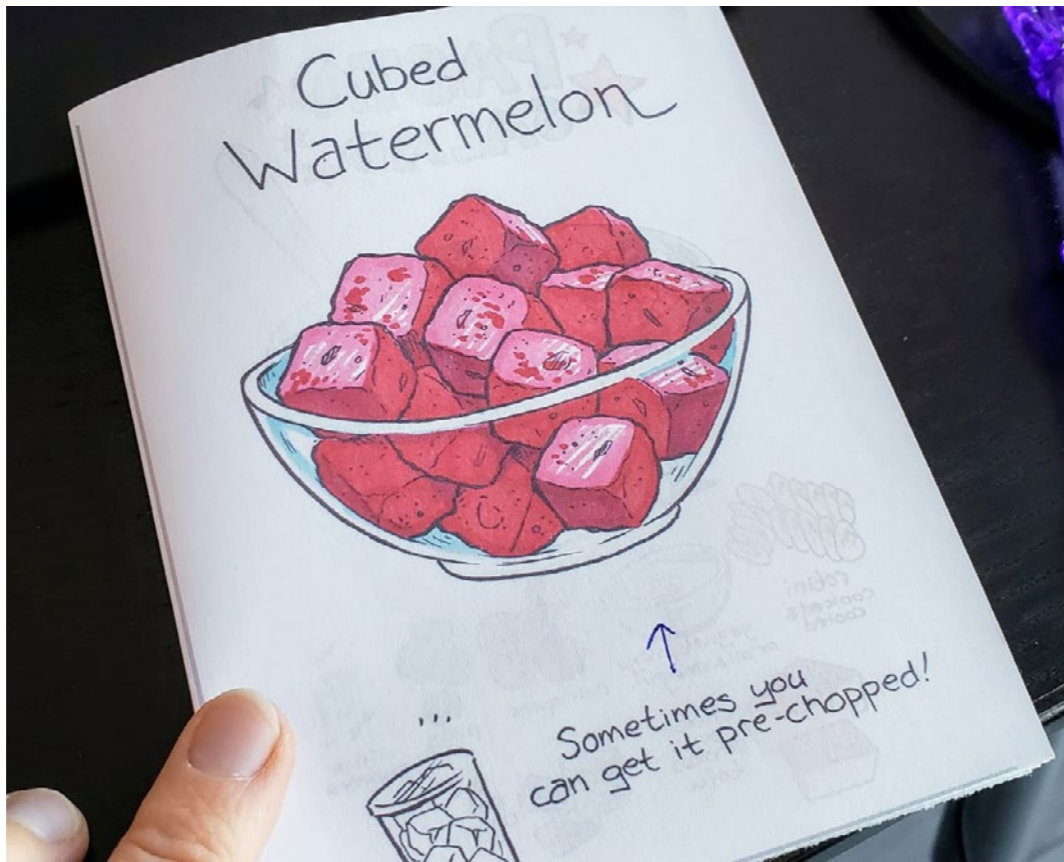 Cubed
Watermelon
...
Sometimes you
can get it pre-chopped!